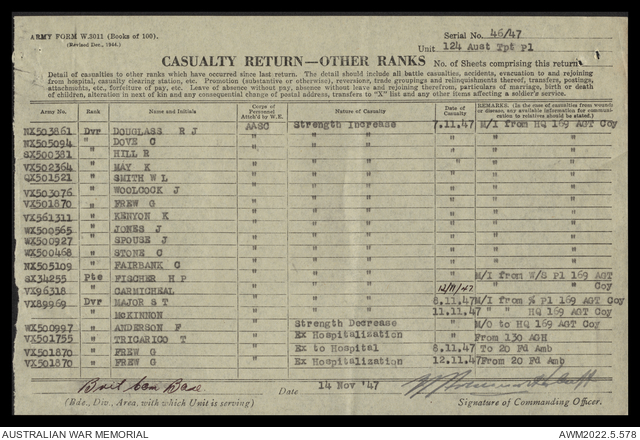 ARMY FORM W.3011 (Books of 100).
(Revised Dec., 1944.)
Serial No. 46/47
Unit 124 Aust Tpt Pl
CASUALTY RETURN—OTHER RANKS No. of Sheets comprising this return
Detail of casualties to other ranks which have occurred since last return. The detail should include all battle casualties, accidents, evacuation to and rejoining
from hospital, casualty clearing station, etc. Promotion (substantive or otherwise), reversions, trade groupings and relinquishments thereof, transfers, postings,
attachments, etc., forfeiture of pay, etc. Leave of absence without pay, absence without leave and rejoining therefrom, particulars of marriage, birth or death
of children, alteration in next of kin and any consequential change of postal address, transfers to "X" list and any other items affecting a soldier's service.
Army No. Rank Name and Initials Corps of Personnel Attch'd by W.E. Nature of Casualty Date of Casualty REMARKS. (In the case of casualties from wounds or disease, any available information for communication to relatives should be stated.)
NX503861 Dvr DOUGLASS R J AASC Strength Increase 7.11.47 M/I from HQ 169 AGT Coy
NX505094 " DOVE C " " " " " "
SX500381 " HILL R " " " " " "
VX502364 " MAY K " " " " " "
QX501521 " SMITH W L " " " " "
VX503076 " WOOLCOCK J " " " " "
VX501870 " FREW G " " " " "
VX561311 " KENYON K " " " " "
WX500565 " JONES J " " " " "
WX500927 " SPOUSE J " " " " "
WX500468 " STONE C " " " " "
NX505109 " FAIRBANK C " " " " "
SX34255 Pte FISCHER H P " " " " M/I from W/S Pl 169 AGT
VX96318 " CARMICHEAL " " " 12/11/47 " " Coy
VX89969 Dvr MAJOR S T " " " 8.11.47 M/I from Pl 169 AGT Coy
" McKINNON " " " 11.11.47 " " HQ 169 AGT Coy
WX500997 " ANDERSON F " Strength Decrease " M/O to HQ 169 AGT Coy
VX501755 " TRICARICO T " Ex Hospitalization " From 130 AGH
VX501870 " FREW G " Ex to Hospital 8.11.47 To 20 Fd Amb
VX501870 " FREW G " Ex Hospitalization 12.11.47 From 20 Fd Amb
Date 14 Nov '47
(Bde., Div., Area, with which Unit is serving)
Signature of Commanding Officer.
AUSTRALIAN WAR MEMORIAL
AWM2022.5.578